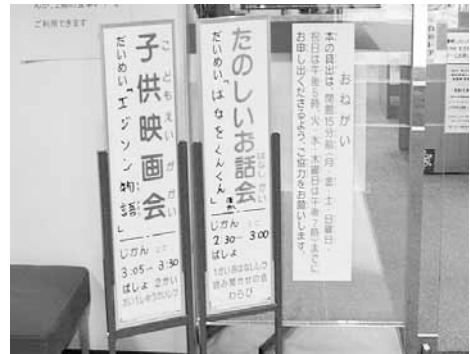 ご利用できます
子供映画会
こどもえいがかい
だいめい「エジソン物語」
じかん
3:05～3:30
ばしょ 2かい
たのしいお話会
はなしかい
だいめい「はなをくんくん」
じかん
2:30～3:00
ばしょ
1かいおはなししつ
読み聞かせの会
わらび
おねがい
本の貸出は、閉館15分前(月・金・土・日曜日・
祝日は午後5時、火・水・木曜日は午後7時)までに
お申し出くださるよう、ご協力をお願いします。